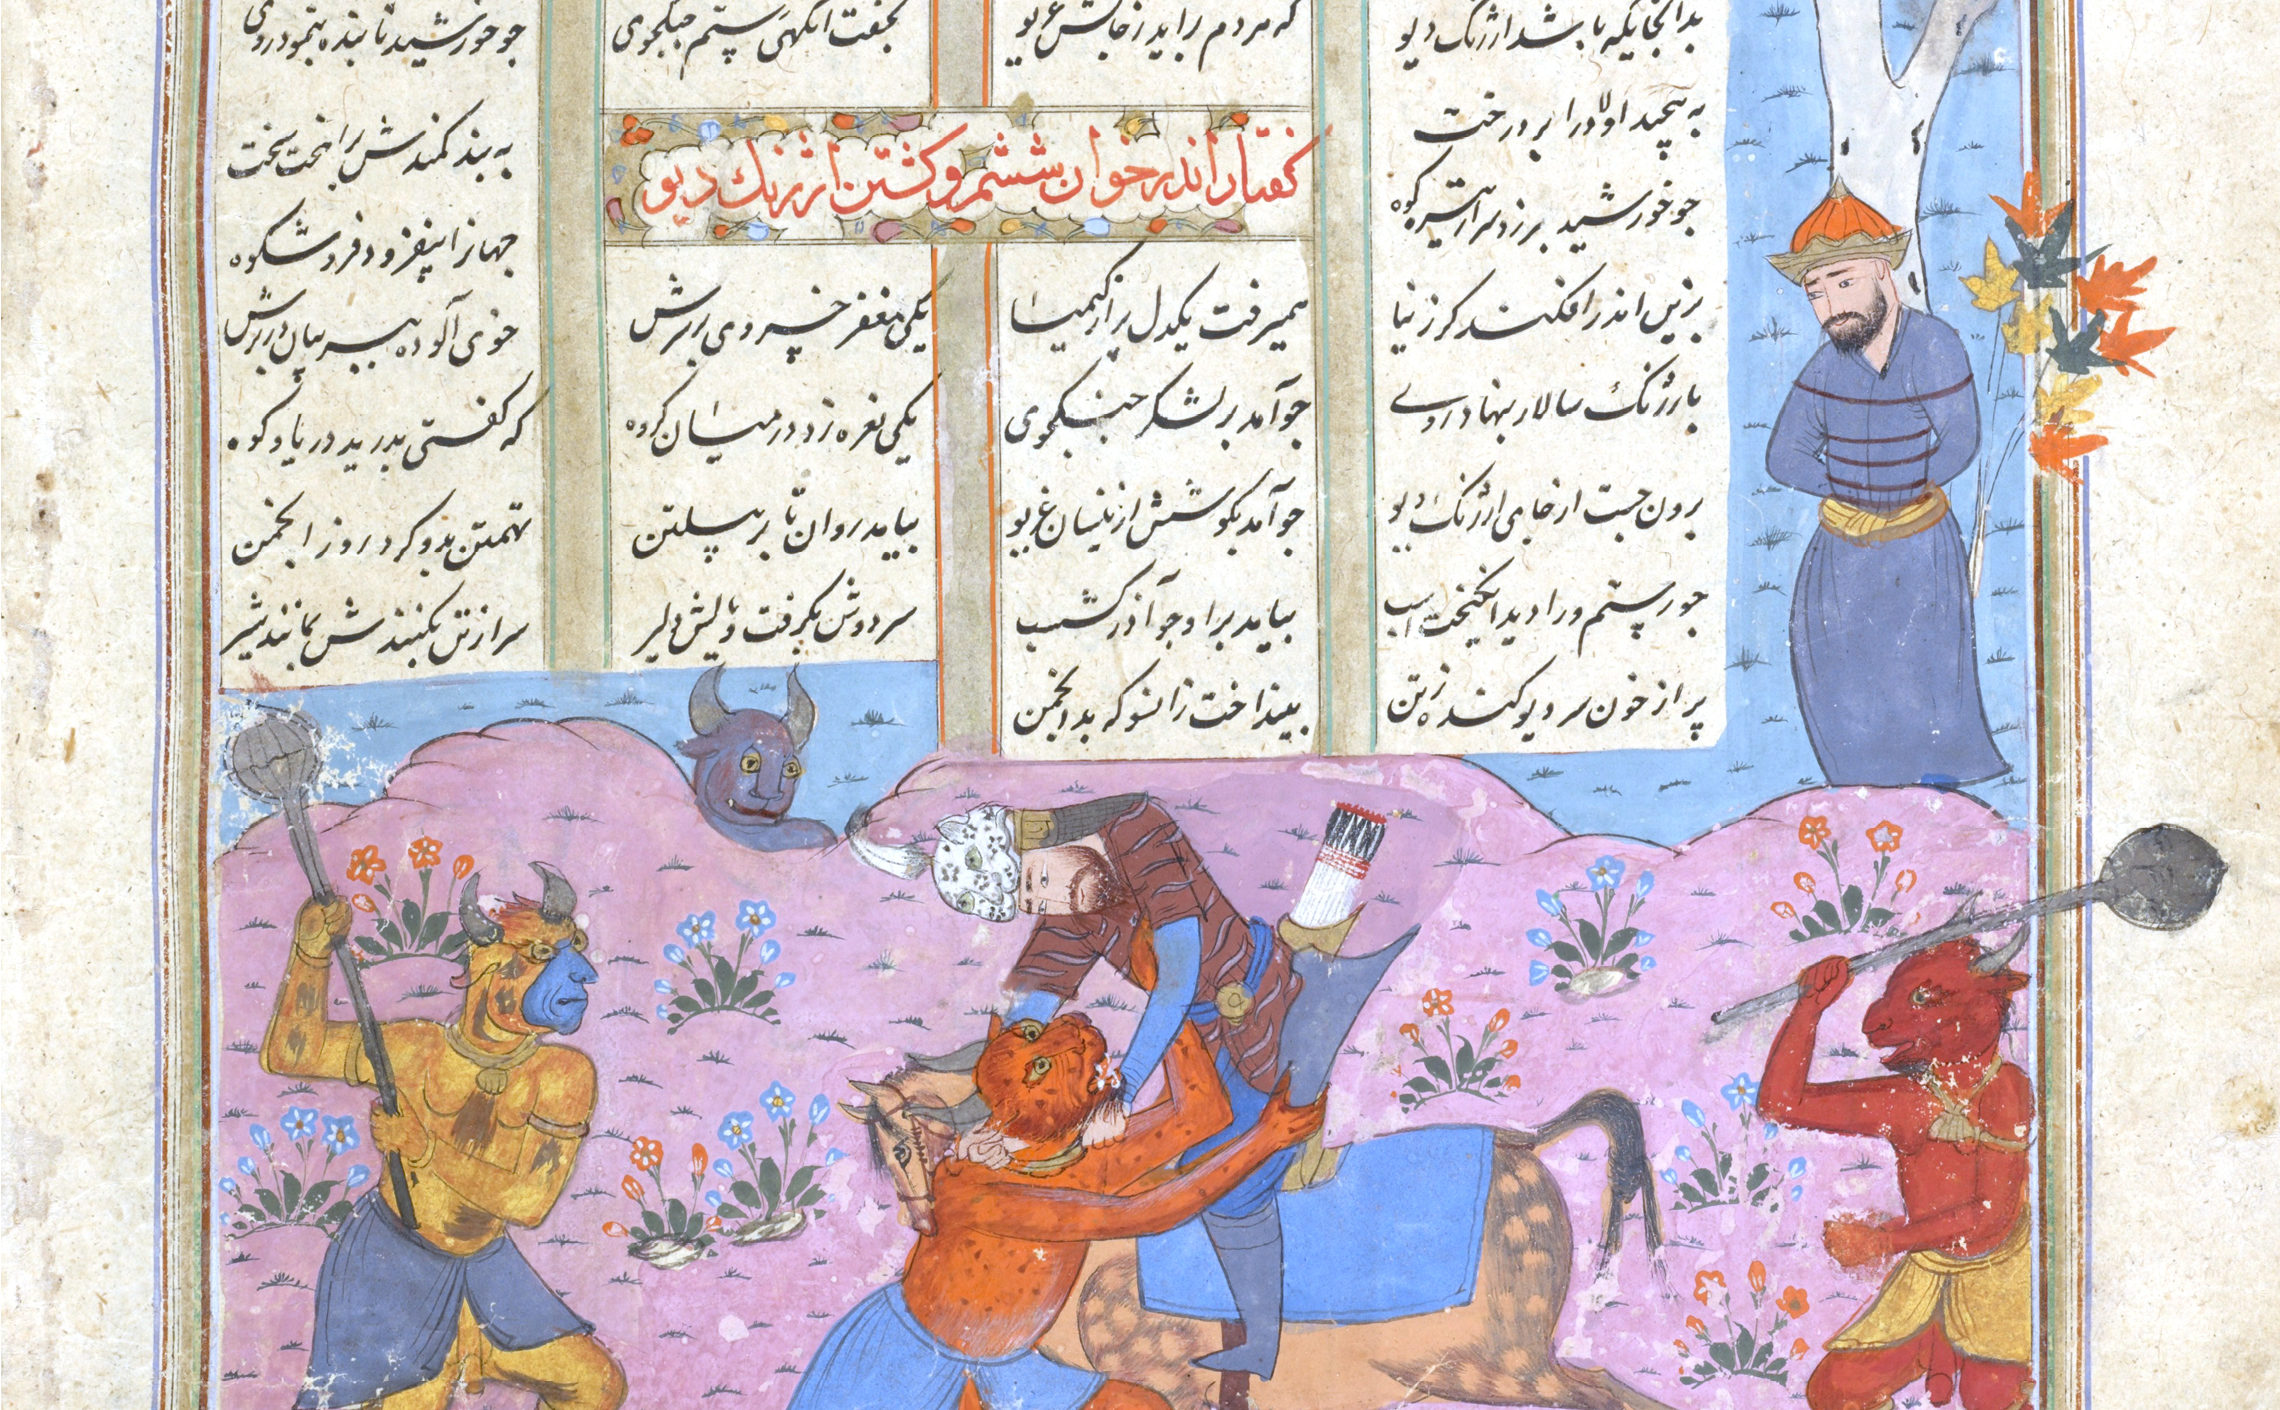 بدانجایگه باشد ارژنگ دیو
که مردم براید زجایش غریو
بخفت آنگهی رستم جنگجوی
چو خورشید تابنده بنمود روی
به پیچید اولاد را بر درخت
به بند کمندش سخت
چو خورشید برزد سر از تیره کوه
جهانرا بیفزود فر و شکوه
گفتار اندر خوان ششم و کشتن ارژنگ دیو
بزین اندر افکند گرز نیا
همیرفت یکدل پر از کیمیا
یکی مغفر خسروی بر سرش
خوی آلوده ببر بیان در برش
بارژنگ سالار بنهاد روی
چو آمد بر لشکر جنگجوی
یکی نعره زد در میان گروه
که گفتی بدرید دریا و کوه
برون جست از جای ارژنگ دیو
چو آمد بگوشش ازینسان غریو
بیامد روان تا بر پیلتن
تهمتن بدو کرد روز انجمن
چو رستم ورا دید انگیخت اسب
بیامد بر او چو آذرگشسب
سر و دوش بگرفت و یالش دلیر
سر از تن بکندش بمانند شیر
پر از خون سر دیو کنده ز تن
بینداخت زانسو که بد انجمن